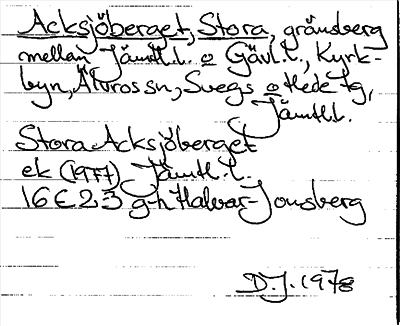 Acksjöberget, Stora, gränsberg
mellan Jämtl.l. o Gävl.l., Kyrk-
byn, Älvros sn, Svegs o Hede tg,
Jämtl.l.
Stora Acksjöberget
ek (1977) Jämtl. l.
16E 2-3 g-h Halvar-Jonsberg
D.J. 1978